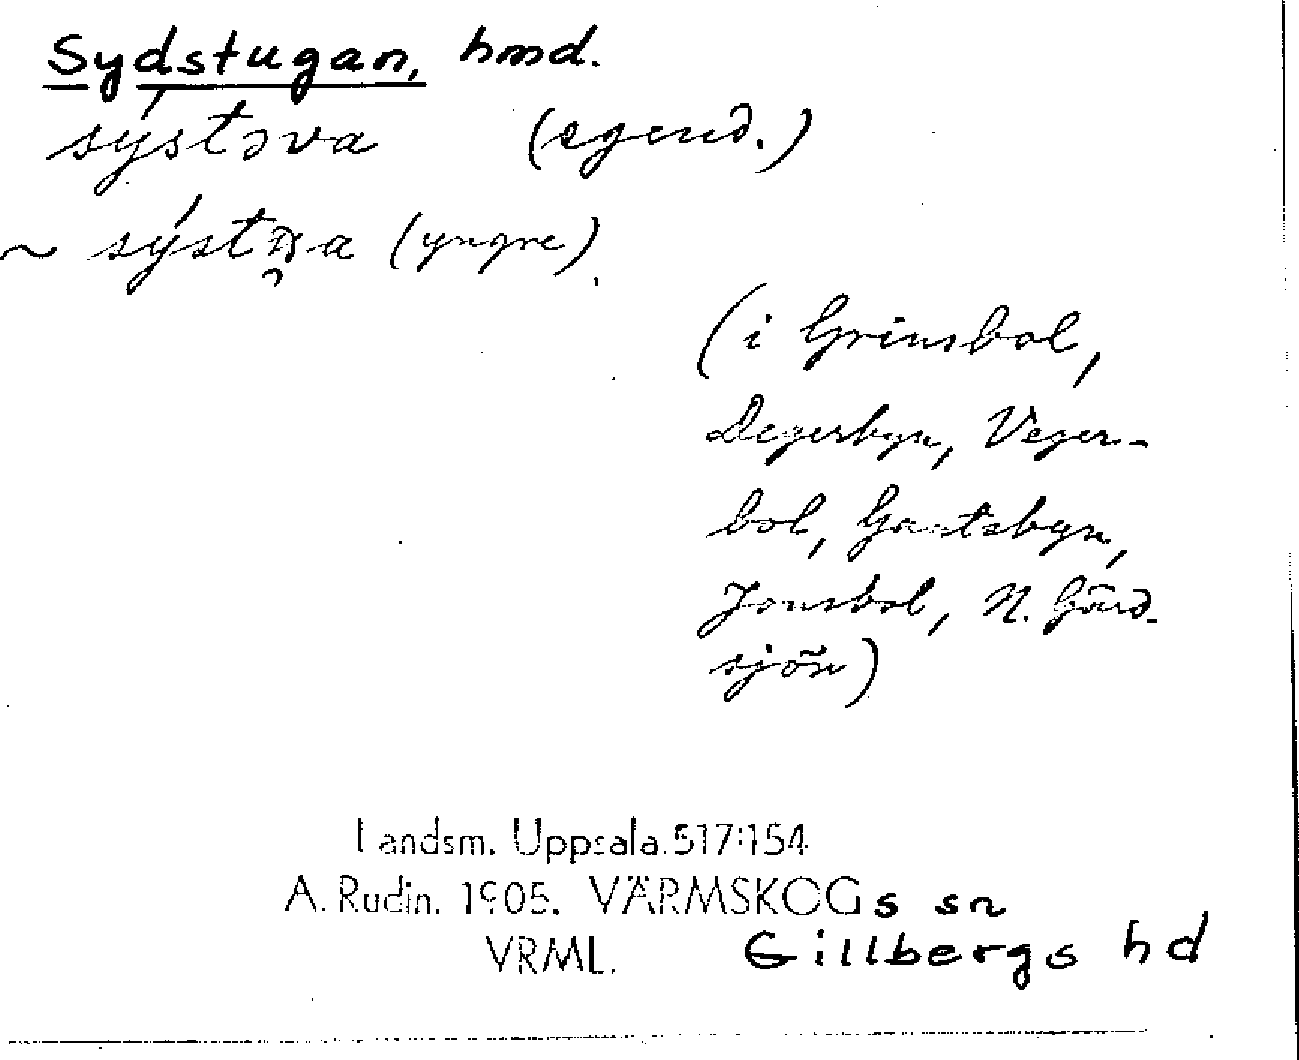 Sydstugan, hmd.
sýstɔva (egend.)
~ (yngre).
(i Grinsbol,
Degerbyn, Veger-
bol, Gautsbyn,
Jonsbol, N. Gärd-
sjön)
Landsm. Uppsala 517:154
A. Rudin. 1905. VÄRMSKOGs sn
VRML. Gillbergs hd